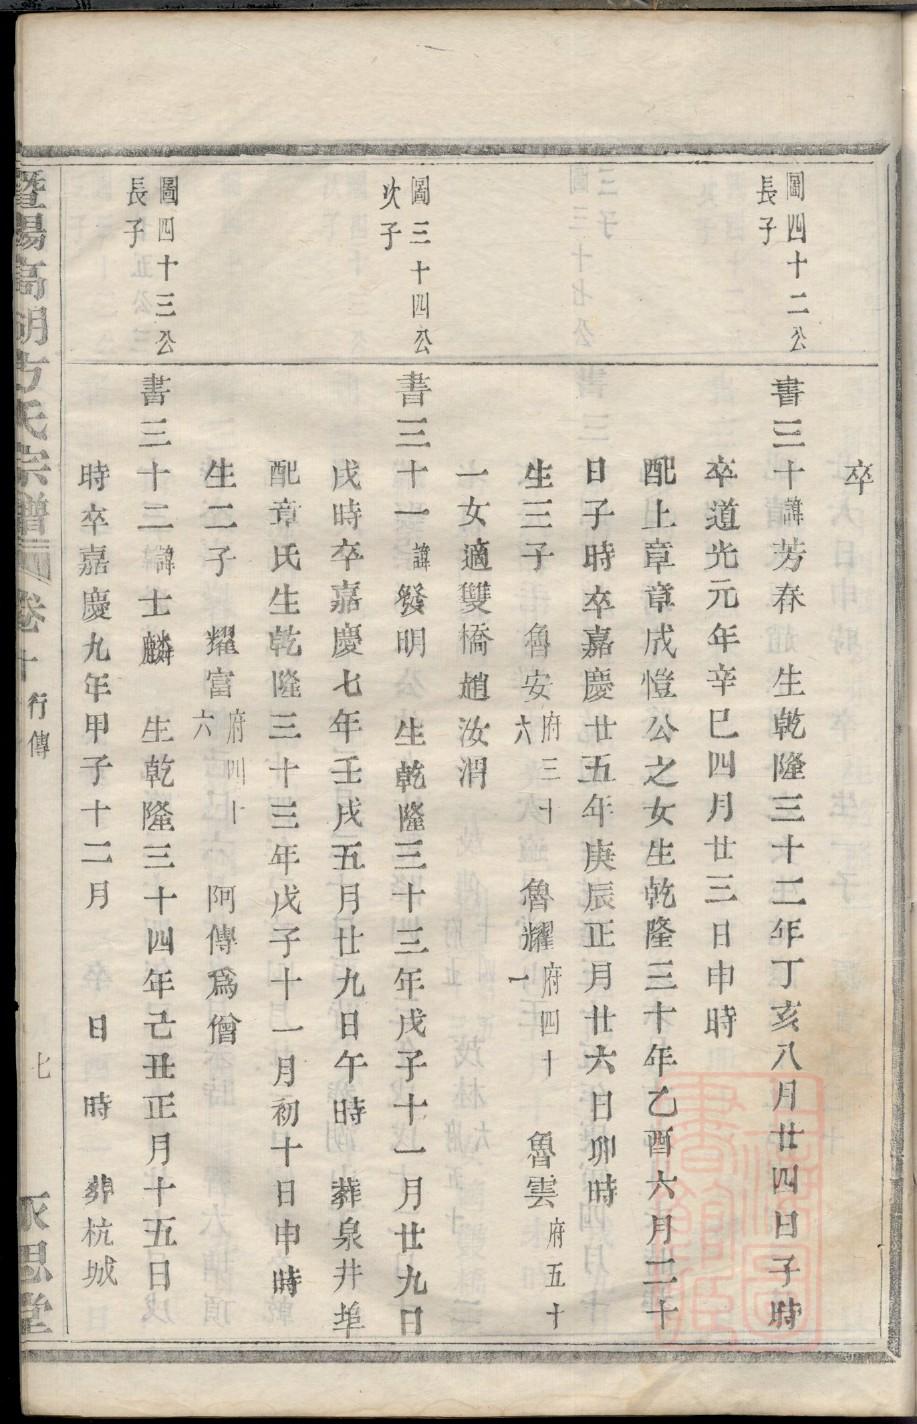 卒
圖四十二公
長子
書三十諱芳春　生乾隆三十二年丁亥八月廿四日子時
卒道光元年辛巳四月廿三日申時
配上章章成愷公之女生乾隆三十年乙酉六月二十
日子時卒嘉慶廿五年庚辰正月廿六日卯時
生三子　魯安府三十六　魯耀府四十一　魯雲府五十
一女適雙橋趙汝渭
圖三十四公
次子
書三十一諱發明　生乾隆三十三年戊子十一月廿九日
戌時卒嘉慶七年壬戌五月廿九日午時　葬泉井埠
配章氏生乾隆三十三年戊子十一月初十日申時
生二子　耀富府四十六　阿傳爲僧
圖四十三公
長子
書三十二諱士麟　生乾隆三十四年己丑正月十五日
時卒嘉慶九年甲子十二月　日　時　葬杭城
暨陽高湖方氏宗譜　卷十　行傳　七　永思堂